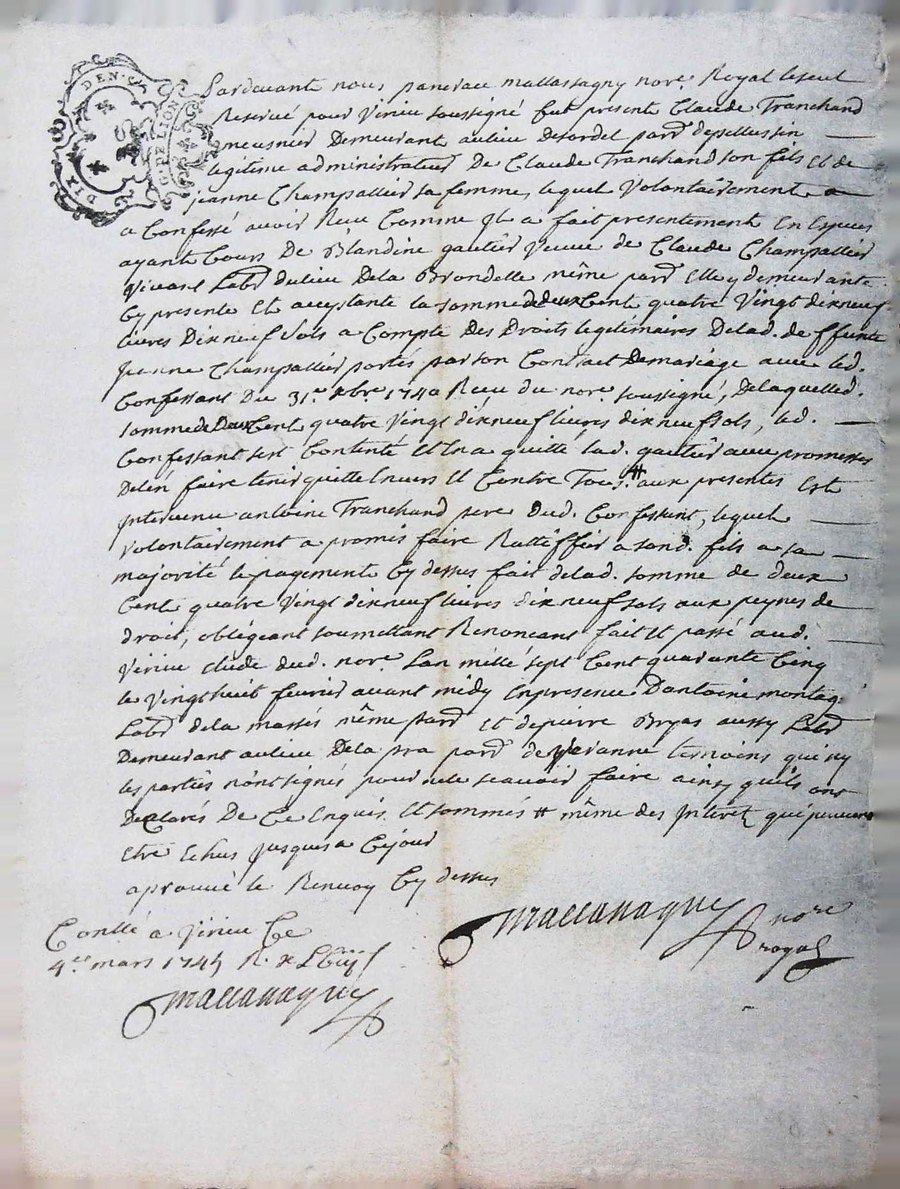 DIX DEN.
G. DE LION
Pardevant nous pancrace mattassagny nore. Royal le seul
Reservé pour Virieu soussigné fut presente Claude Tranchand
meusnier Demeurant au lieu de par. de pellussin
legitime administrateur De Claude Tranchand son fils Et de
jeanne Champallier sa femme, lequel Volontairement a
a Confessé avoir Reçu Comme Il a fait presentement En Espèces
ayant Cours De Blandine gautier Veuve de Claude Champallier
Vivant Labr. du lieu De la Brondelle même par. Elle y demeurante
Cy presente Et acceptante la somme de deux Cent quatre Vingt dix neuf
livres Dix neuf sols a Compte Des Droits legitimaires De lad. deffunte
jeanne Champallier portés par son Contract De mariage avec led.
Confessant Du 31e. xbre. 1740 Reçu du nore. soussigné, De laquelled.
somme de Deux Cent quatre Vingt dix neuf livres dix neuf sols, led.
Confessant s'est Contenté Et En a quitté lad. gautier avec promesses
De l'en faire tenir quitte Envers Et Contre Tous # aux presentes Est
Intervenu antoine Tranchand pere dud. Confessant, lequel
Volontairement a promis faire Rattiffier a sond. fils a sa
majorité le payement Cy dessus fait de lad. somme de deux
Cent quatre Vingt dix neuf livres dix neuf sols aux peynes de
droit, obligeant soumettant Renonçant fait Et passé aud.
Virieu Etude dud. nore. L'an mille sept Cent quarante Cinq
le Vingt huit fevrier avant midy En presence D'antoine montag
Labr. de la massés même par. Et de pierre Bryas aussy Labr.
Demeurant au lieu De la pra par. de veranne temoins qui ny
les parties n'ont signés pour ne le scavoir faire ainsy quils ont
Declarés De Ce Enquis Et sommés # même des Interêt qui peuvent
Etre Echus jusques a Ce jour
aprouvé le Renvoy Cy dessus
Conllé a Virieu Ce
4e. mars 1745 R.
Mattassagny nore
royal
Mattassagny